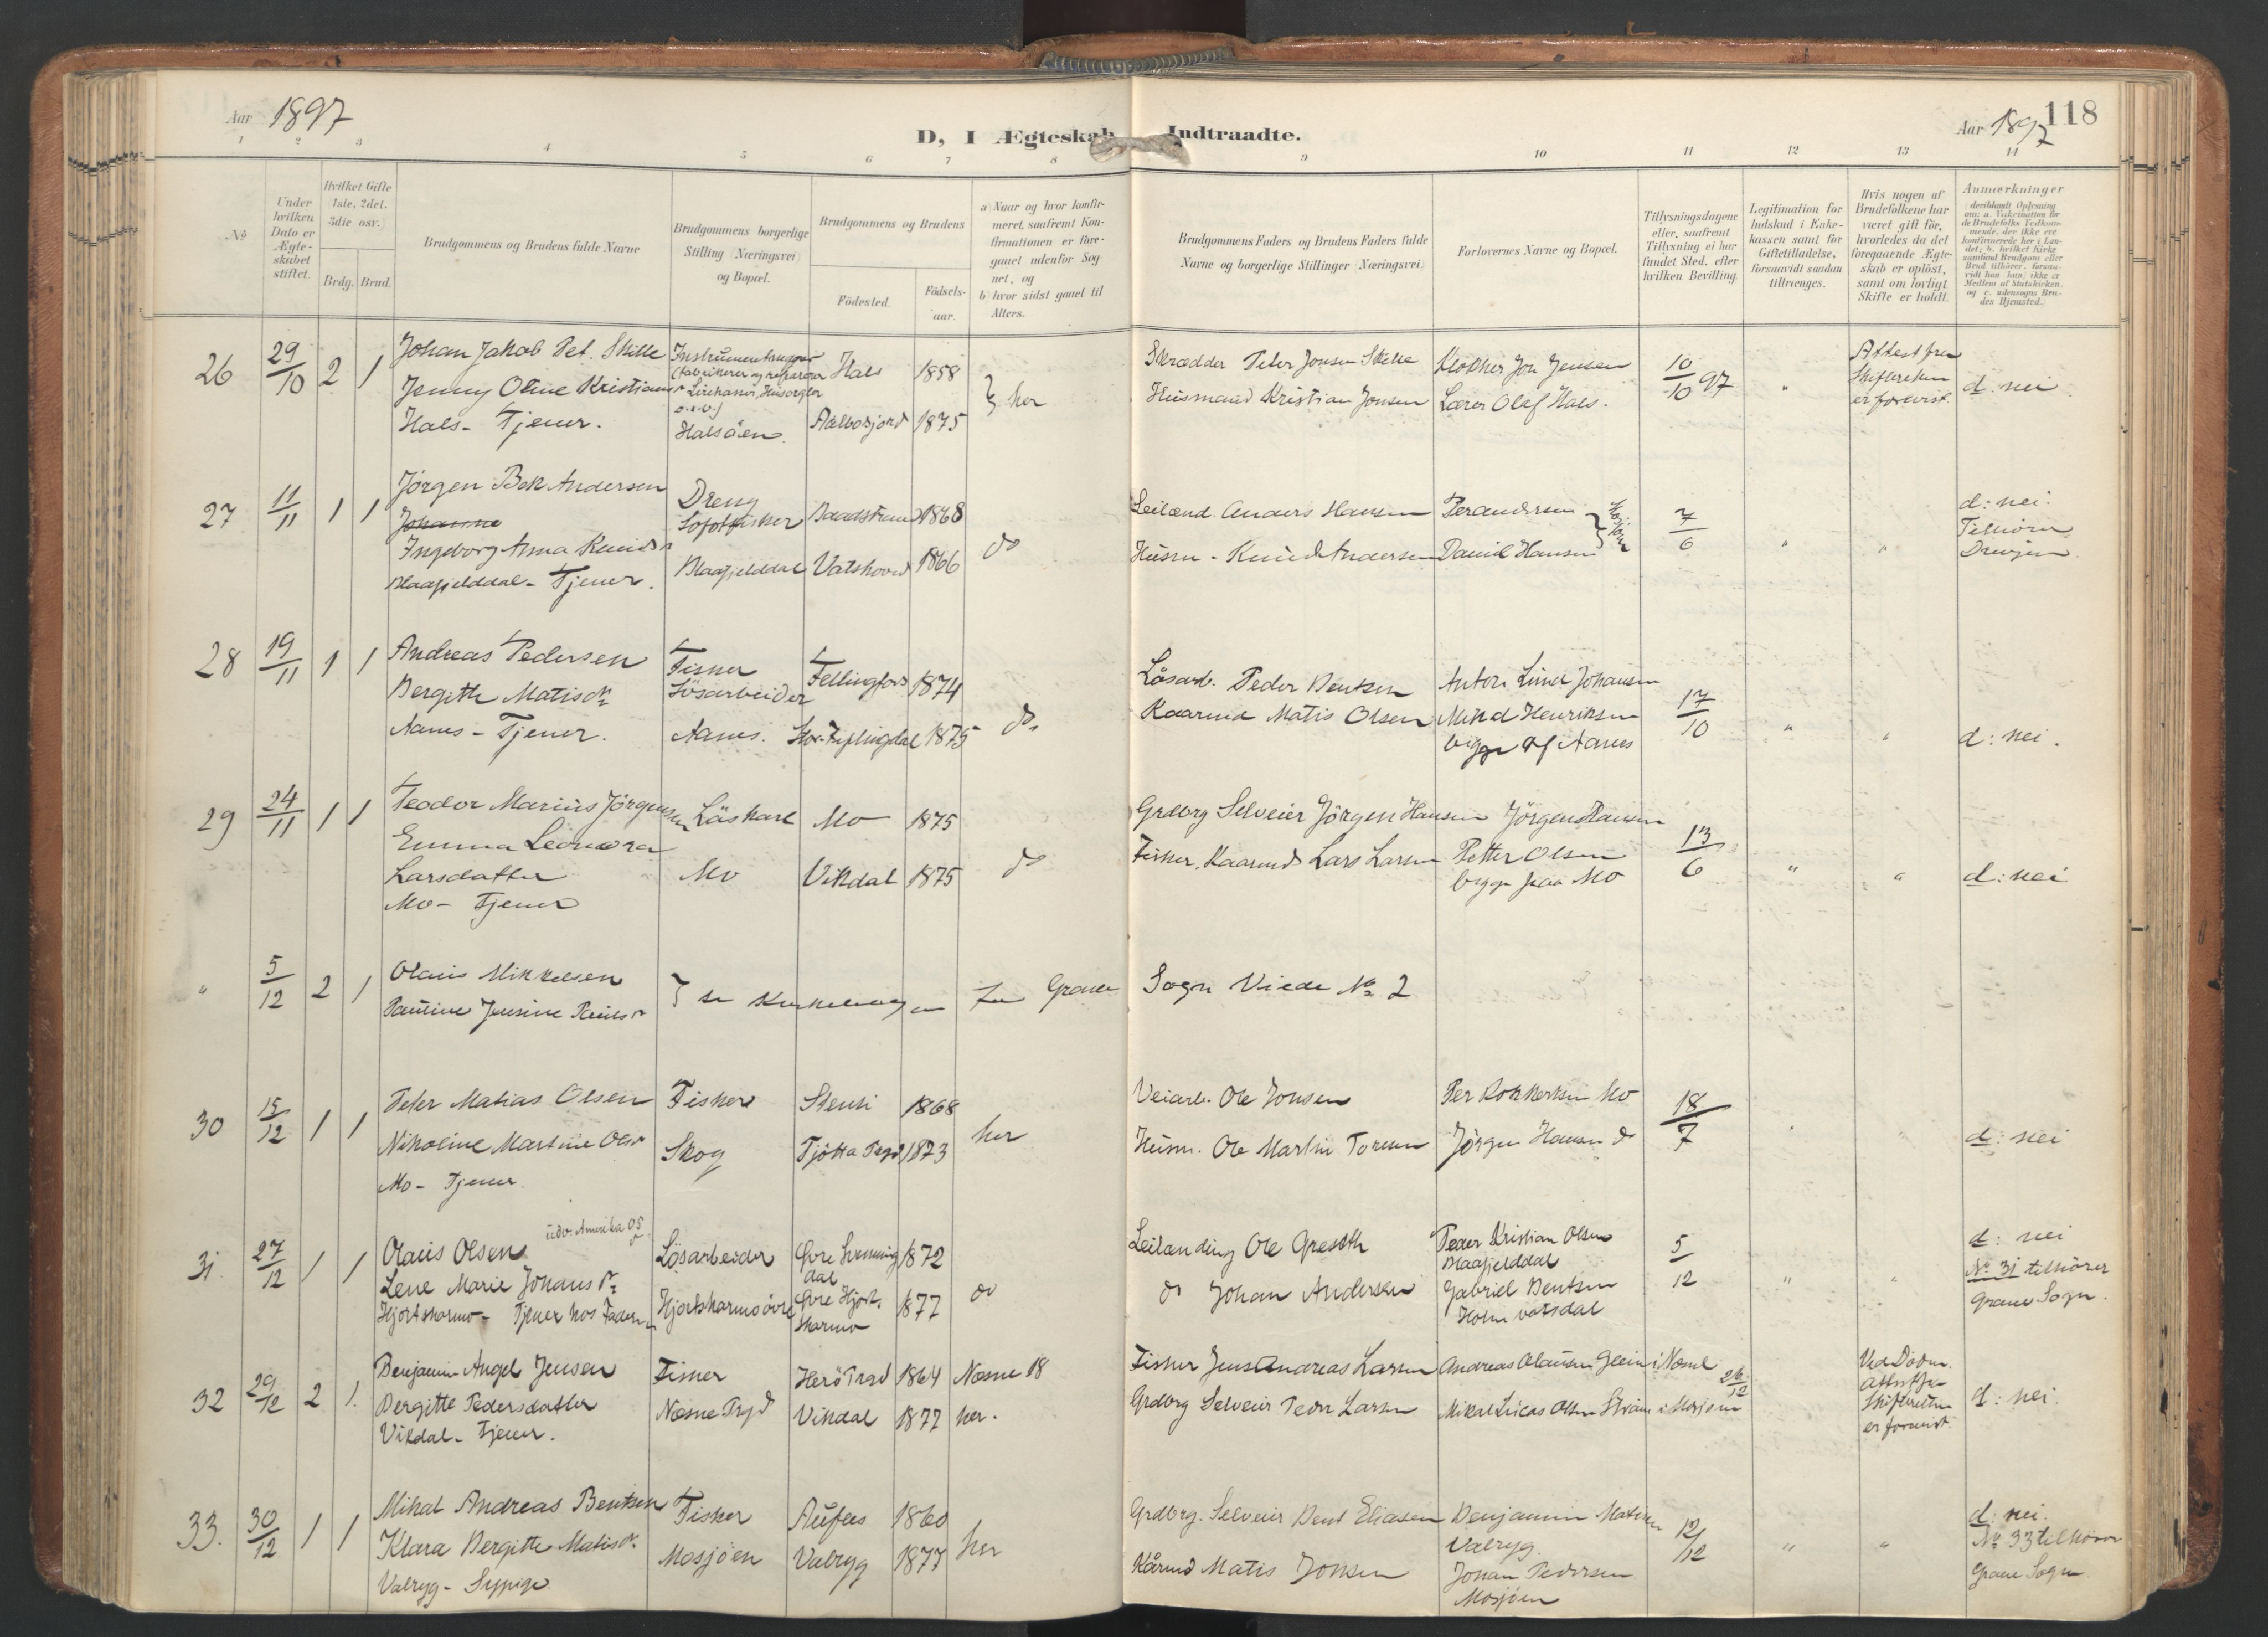 Aar 1897
D, I Ægteskab Indtraadte.
Aar 1897
118
1 2 3 4 5 6 7 8 9 10 11 12 13 14
No
Under hvilken Dato er Ægteskabet stiftet.
Hvilket Gifte 1ste, 2det, 3die osv.
Brdg. Brud.
Brudgommens og Brudens fulde Navne
Brudgommens borgerlige Stilling (Næringsvei) og Bopæl.
Brudgommens og Brudens
Födested.
Födselsaar.
a) Naar og hvor konfirmeret, saafremt Konfirmationen er foregaaet udenfor Sognet, og
b) hvor sidst gaaet til Alters.
Brudgommens Faders og Brudens Faders fulde Navne og borgerlige Stillinger (Næringsvei)
Forlovernes Navne og Bopæl.
Tillysningsdagene eller, saafremt Tillysning ei har fundet Sted, efter hvilken Bevilling.
Legitimation for Indskud i Enkekassen samt for Giftetilladelse, forsaavidt saadan tiltrænges.
Hvis nogen af Brudefolkene har været gift för, hvorledes da det foregaaende Ægteskab er oplöst, samt om lovligt Skifte er holdt.
Anmærkninger
26 29/10 2 1 Johan Jakob Pet. Skille
Hals 1858
Jenny Oline Kristians dr
Hals - Tjener.
Halsöen.
1875
her
Skrædder Peter Jonsen Skille
Husmand Kristian Jonsen
Klokker Jon Jensen
Lærer Olaf Hals.
10/10 97
"
Attest fra Skifteretten er forevist
d. nei
27 11/11 1 1 Jörgen Bek Andersen
Johanne
Ingeborg Anna Knuds dr
Blaafjelddal - Tjener.
Dreng
Lofotfisker
Blaafjelddal
1868
1866
do
Leilænd. Anders Hansen
Husm - Knud Andersen
Per Andersen
Daniel Hansen
7/6
"
"
d: nei.
Tilhörer
Drevjen
28 19/11 1 1 Andreas Pedersen
Bergitte Matisdr
Aanes - Tjener.
Fisker
Lösarbeider
Aanes.
Fellingfors 1874
1875
do
Lösarb. Peder Bentsen
Kaarmd Matis Olsen
Anton Lund Johansen
Mikal Henriksen
begge af Aanes
17/10
"
"
d: nei.
29 24/11 1 1 Teodor Marius Jörgensen
Emma Leonora
Larsdatter
Mo - Tjener
Löskarl
Mo
Mo 1875
Vikdal 1875
do
Grdbrg Selveier Jörgen Hansen
Fisker. Kaarmd Lars Larsen
Jörgen Hansen
Petter Olsen
begge paa Mo
13/6
"
"
d: nei
" 5/12 2 1 Olaus Mikkelsen
Pauline Jensine Paulsdr
} se Kirkebogen for Grane Sogn Viede No 2
30 15/12 1 1 Peter Matias Olsen
Nikoline Martine Olsdr
Mo - Tjener
Fisker
Skog
1868
Tjötta Prgd 1873
her
Veiarb. Ole Jonsen
Husm. Ole Martin Toresen
Mo
Jörgen Hansen do
18/7
d: nei
31. 27/12 1 1 Olaus Olsen udv. Amerika 05
Lene Marie Johansdr
Hjortskarmo - Tjener hos Faderen
Lösarbeider
Hjortskarmo övre
Övre Svenningdal 1872
Övre Hjortskarmo 1877
do
Leilænding Ole
do Johan Andersen
Peder Kristian Olsen
Blaafjelddal
Gabriel Bentsen
Holmvatsdal
5/12
"
"
d: nei
No 31 tilhörer
Grane Sogn.
32 29/12 2 1. Benjamin Angel Jensen
Bergitte Pedersdatter
Vikdal - Tjener.
Fisker
Næsne Prgd
Herö Prgd 1864
Vikdal 1877
Næsne 18
her.
Fisker Jens Andreas Larsen
Grdbrg Selveier Peder Larsen
Andreas Olausen
Mikal Lucas Olsen
26/12
Ved Döden.
Attest fra Skifteretten er forevist
d: nei.
33. 30/12 1 1 Mikal Andreas Bentsen
Klara Bergitte Matisdr.
Valryg - Sypige
Fisker
Mosjöen
Aufles 1860
Valryg 1877
her
Grdbrg. Selveier Bent Eliasen
Kårmd Matis Jonsen
Benjamin Matisen
Valryg.
Johan Pedersen
Mosjöen
12/12
"
"
d: nei.
No 33 tilhörer
Grane Sogn